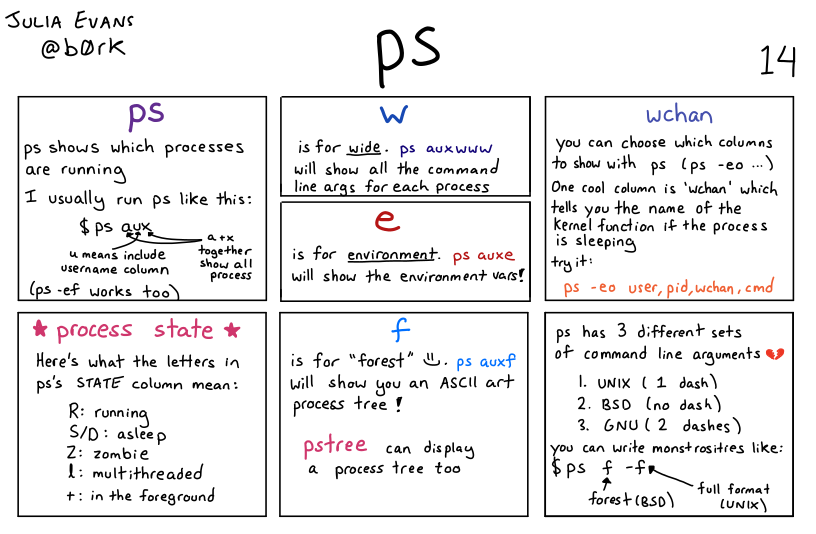 JULIA EVANS
@bØrk
ps
14
ps
ps shows which processes
are running
I usually run ps like this:
$ ps aux
u means include
username column
a+x
together
show all
process
(ps -ef works too)
w
is for wide. ps auxwww
will show all the command
line args for each process
e
is for environment. ps auxe
will show the environment vars!
wchan
you can choose which columns
to show with ps (ps -eo ...)
One cool column is 'wchan' which
tells you the name of the
kernel function if the process
is sleeping
try it:
ps -eo user,pid,wchan,cmd
★ process state ★
Here's what the letters in
ps's STATE column mean:
R: running
S/D: asleep
Z: zombie
l: multithreaded
+: in the foreground
f
is for "forest" :). ps auxf
will show you an ASCII art
process tree!
pstree can display
a process tree too
ps has 3 different sets
of command line arguments 💔
1. UNIX (1 dash)
2. BSD (no dash)
3. GNU (2 dashes)
you can write monstrosities like:
$ ps f -f
forest (BSD)
full format
(UNIX)